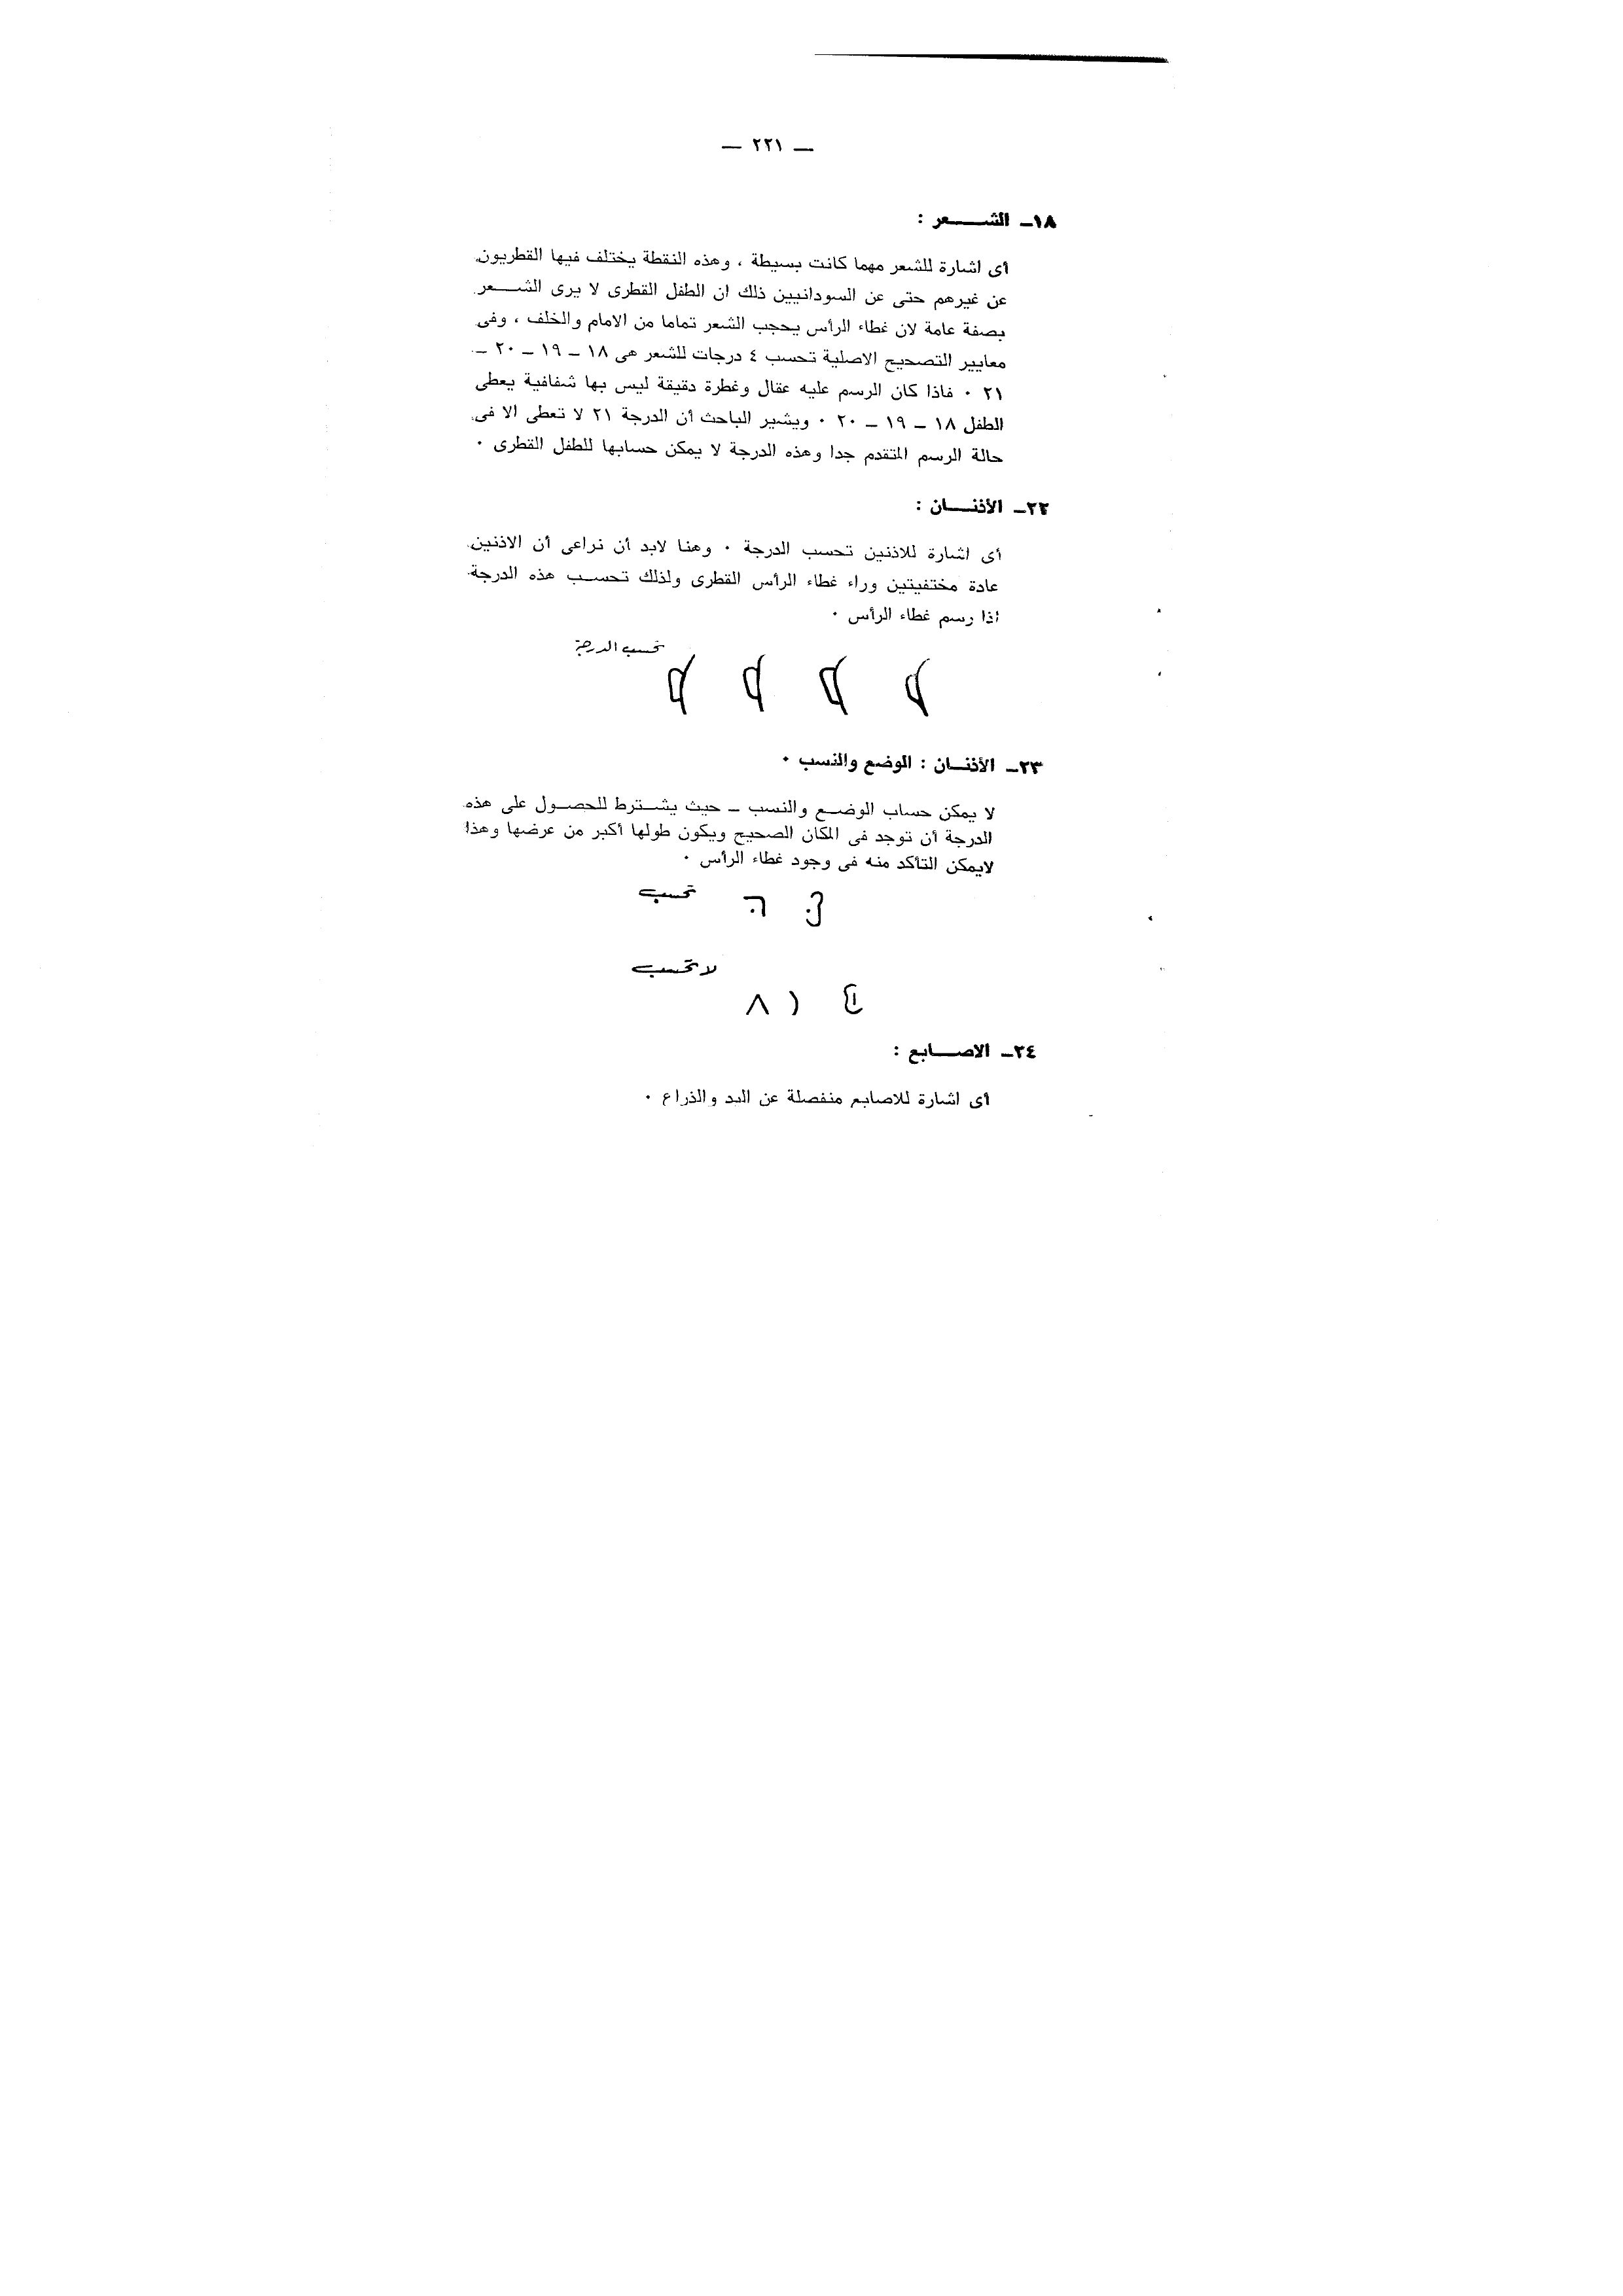 — ٢٢١ —
١٨ـ الشـــــعر :
أى اشارة للشعر مهما كانت بسيطة ، وهذه النقطة يختلف فيها القطريون
عن غيرهم حتى عن السودانيين ذلك ان الطفل القطرى لا يرى الشـــعر
بصفة عامة لان غطاء الرأس يحجب الشعر تماما من الامام والخلف ، وفى
معايير التصحيح الاصلية تحسب ٤ درجات للشعر هى ١٨ ـ ١٩ ـ ٢٠ ـ
٢١ ٠ فاذا كان الرسم عليه عقال وغطرة دقيقة ليس بها شفافية يعطى
الطفل ١٨ ـ ١٩ ـ ٢٠ ٠ ويشير الباحث أن الدرجة ٢١ لا تعطى الا فى
حالة الرسم المتقدم جدا وهذه الدرجة لا يمكن حسابها للطفل القطرى ٠
٢٢ـ الأذنـــان :
أى اشارة للاذنين تحسب الدرجة ٠ وهنا لابد أن نراعى أن الاذنين
عادة مختفيتين وراء غطاء الرأس القطرى ولذلك تحســب هذه الدرجة
اذا رسم غطاء الرأس ٠
تحسب الدرجة
٢٣ـ الأذنــان : الوضع والنسب ٠
لا يمكن حساب الوضــع والنسب ـ حيث يشــترط للحصــول على هذه
الدرجة أن توجد فى المكان الصحيح ويكون طولها أكبر من عرضها وهذا
لايمكن التأكد منه فى وجود غطاء الرأس ٠
تحسب
لا تحسب
٢٤ـ الاصــــابع :
أى اشارة للاصابع منفصلة عن اليد والذراع ٠